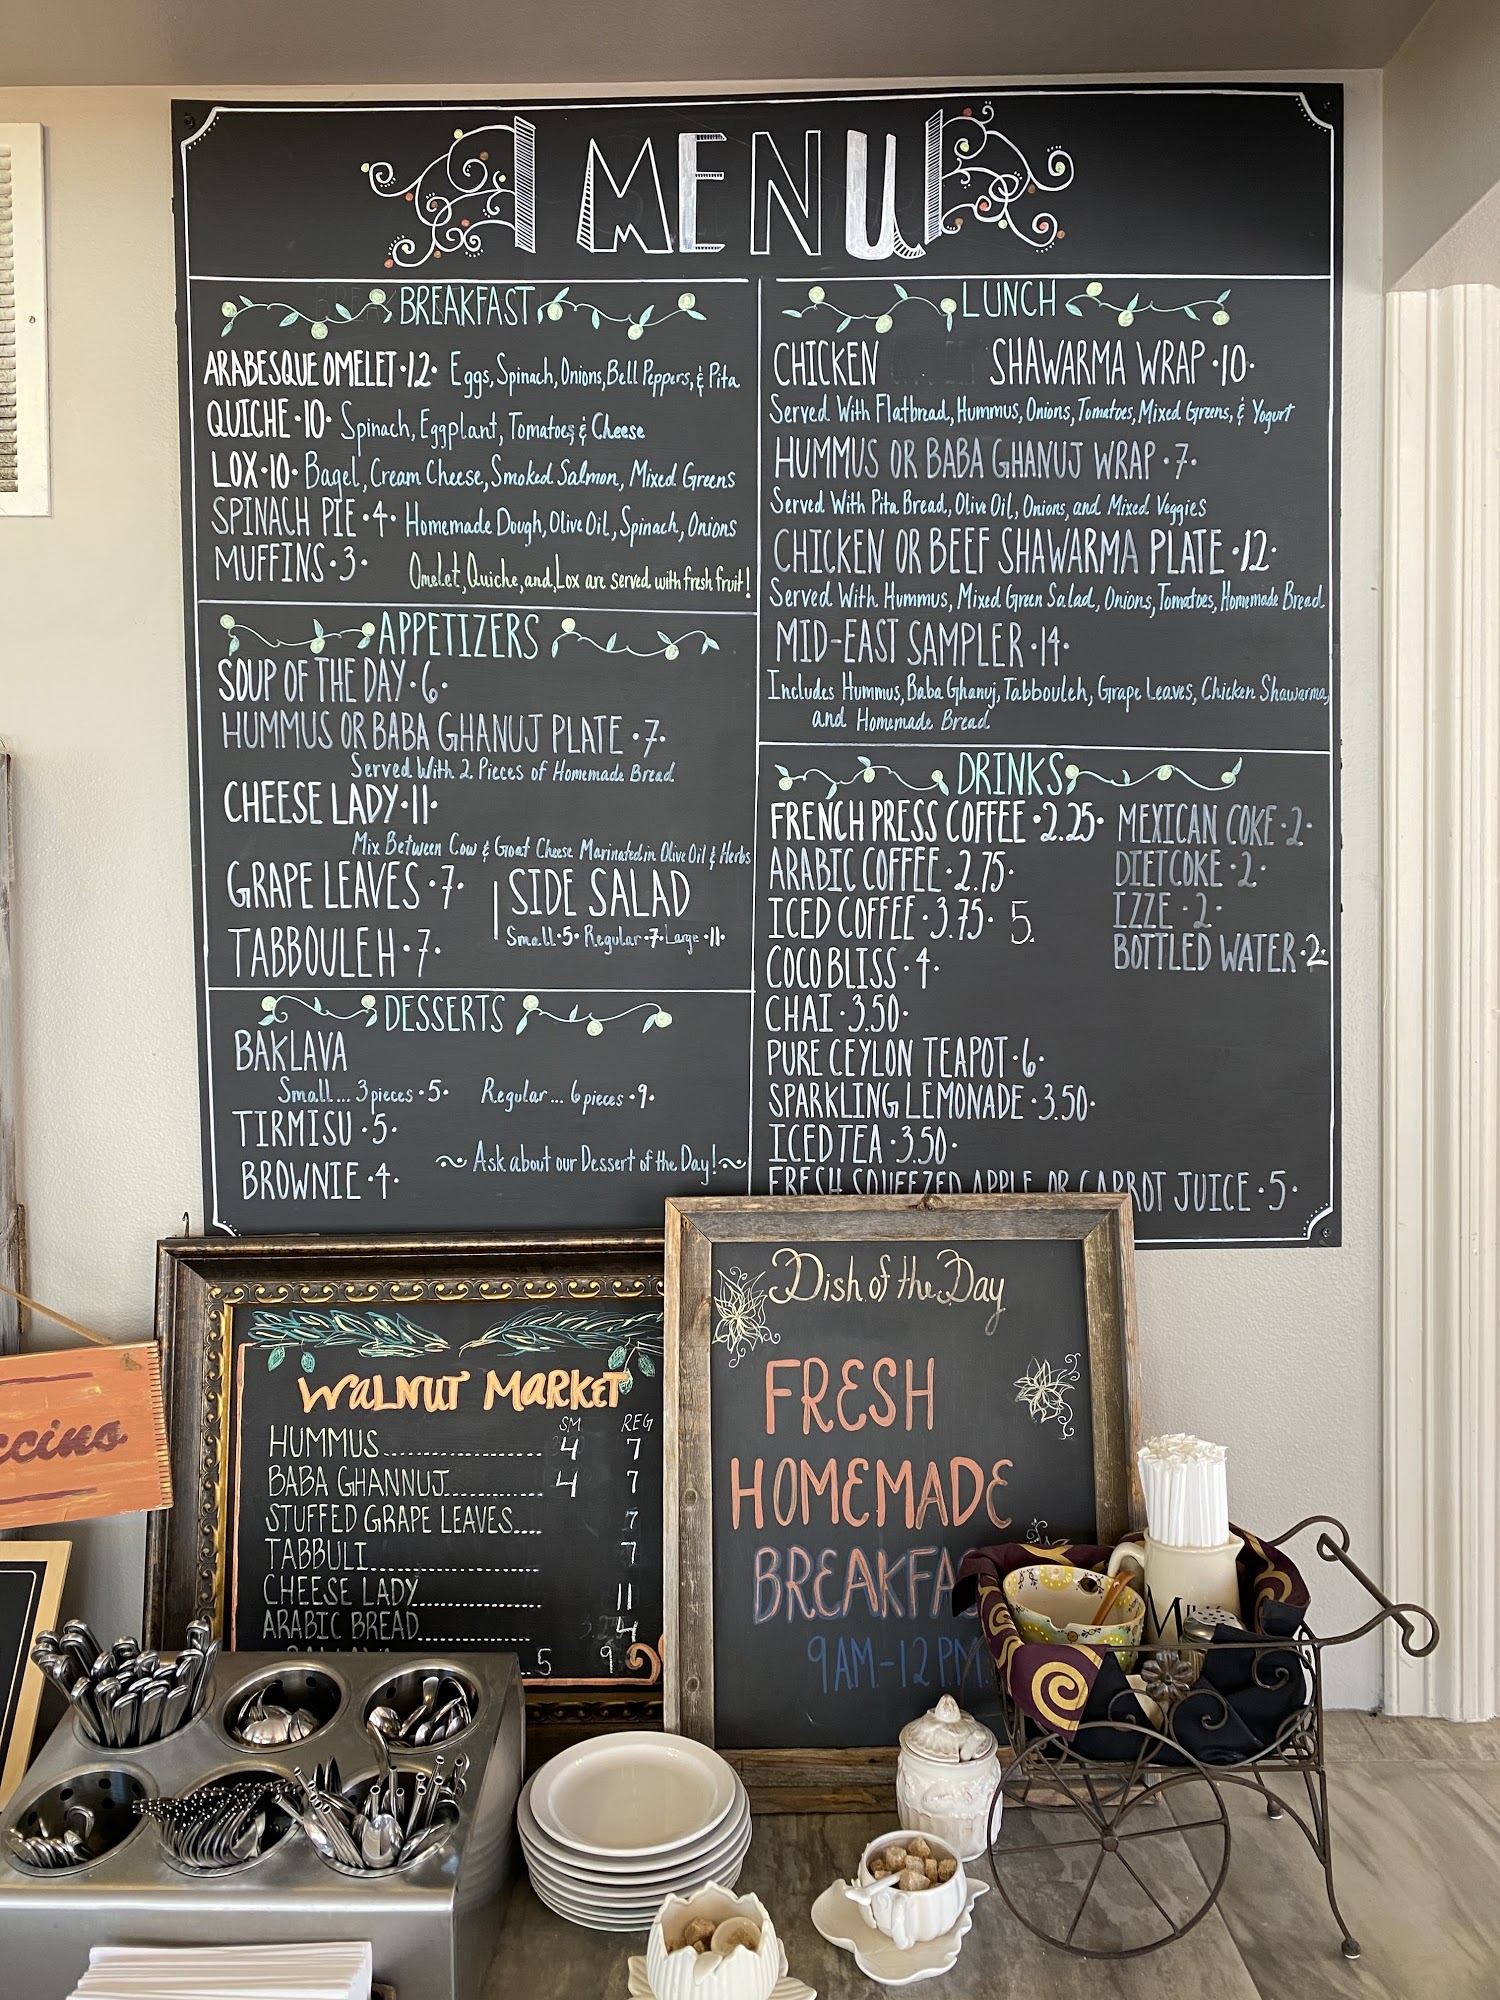 MENU
BREAKFAST
ARABESQUE OMELET·12· Eggs, Spinach, Onions, Bell Peppers, & Pita
QUICHE·10· Spinach, Eggplant, Tomatoes & Cheese
LOX·10· Bagel, Cream Cheese, Smoked Salmon, Mixed Greens
SPINACH PIE·4· Homemade Dough, Olive Oil, Spinach, Onions
MUFFINS·3·
Omelet, Quiche, and, Lox are served with fresh fruit!
APPETIZERS
SOUP OF THE DAY·6·
HUMMUS OR BABA GHANUJ PLATE·7·
Served With 2 Pieces of Homemade Bread
CHEESE LADY·11·
Mix Between Cow & Goat Cheese Marinated in Olive Oil & Herbs
GRAPE LEAVES·7·
TABBOULEH·7·
SIDE SALAD
Small·5· Regular·7· Large·11·
DESSERTS
BAKLAVA
Small... 3 pieces·5· Regular... 6 pieces·9·
TIRMISU·5·
BROWNIE·4·
~Ask about our Dessert of the Day!~
LUNCH
CHICKEN SHAWARMA WRAP·10·
Served With Flatbread, Hummus, Onions, Tomatoes, Mixed Greens, & Yogurt
HUMMUS OR BABA GHANUJ WRAP·7·
Served With Pita Bread, Olive Oil, Onions, and Mixed Veggies
CHICKEN OR BEEF SHAWARMA PLATE·12·
Served With Hummus, Mixed Green Salad, Onions, Tomatoes, Homemade Bread
MID-EAST SAMPLER·14·
Includes Hummus, Baba Ghanuj, Tabbouleh, Grape Leaves, Chicken Shawarma,
and Homemade Bread
DRINKS
FRENCH PRESS COFFEE·2.25·
ARABIC COFFEE·2.75·
ICED COFFEE·3.75· 5.
COCO BLISS·4·
CHAI·3.50·
PURE CEYLON TEAPOT·6·
SPARKLING LEMONADE·3.50·
ICED TEA·3.50·
FRESH SQUEEZED APPLE OR CARROT JUICE·5·
MEXICAN COKE·2·
DIET COKE·2·
IZZE·2·
BOTTLED WATER·2·
WALNUT MARKET
SM REG
HUMMUS 4 7
BABA GHANNUJ 4 7
STUFFED GRAPE LEAVES 7
TABBULI 7
CHEESE LADY 11
ARABIC BREAD 4
5 9
Dish of the Day
FRESH
HOMEMADE
BREAKFA
9AM-12PM
ccino